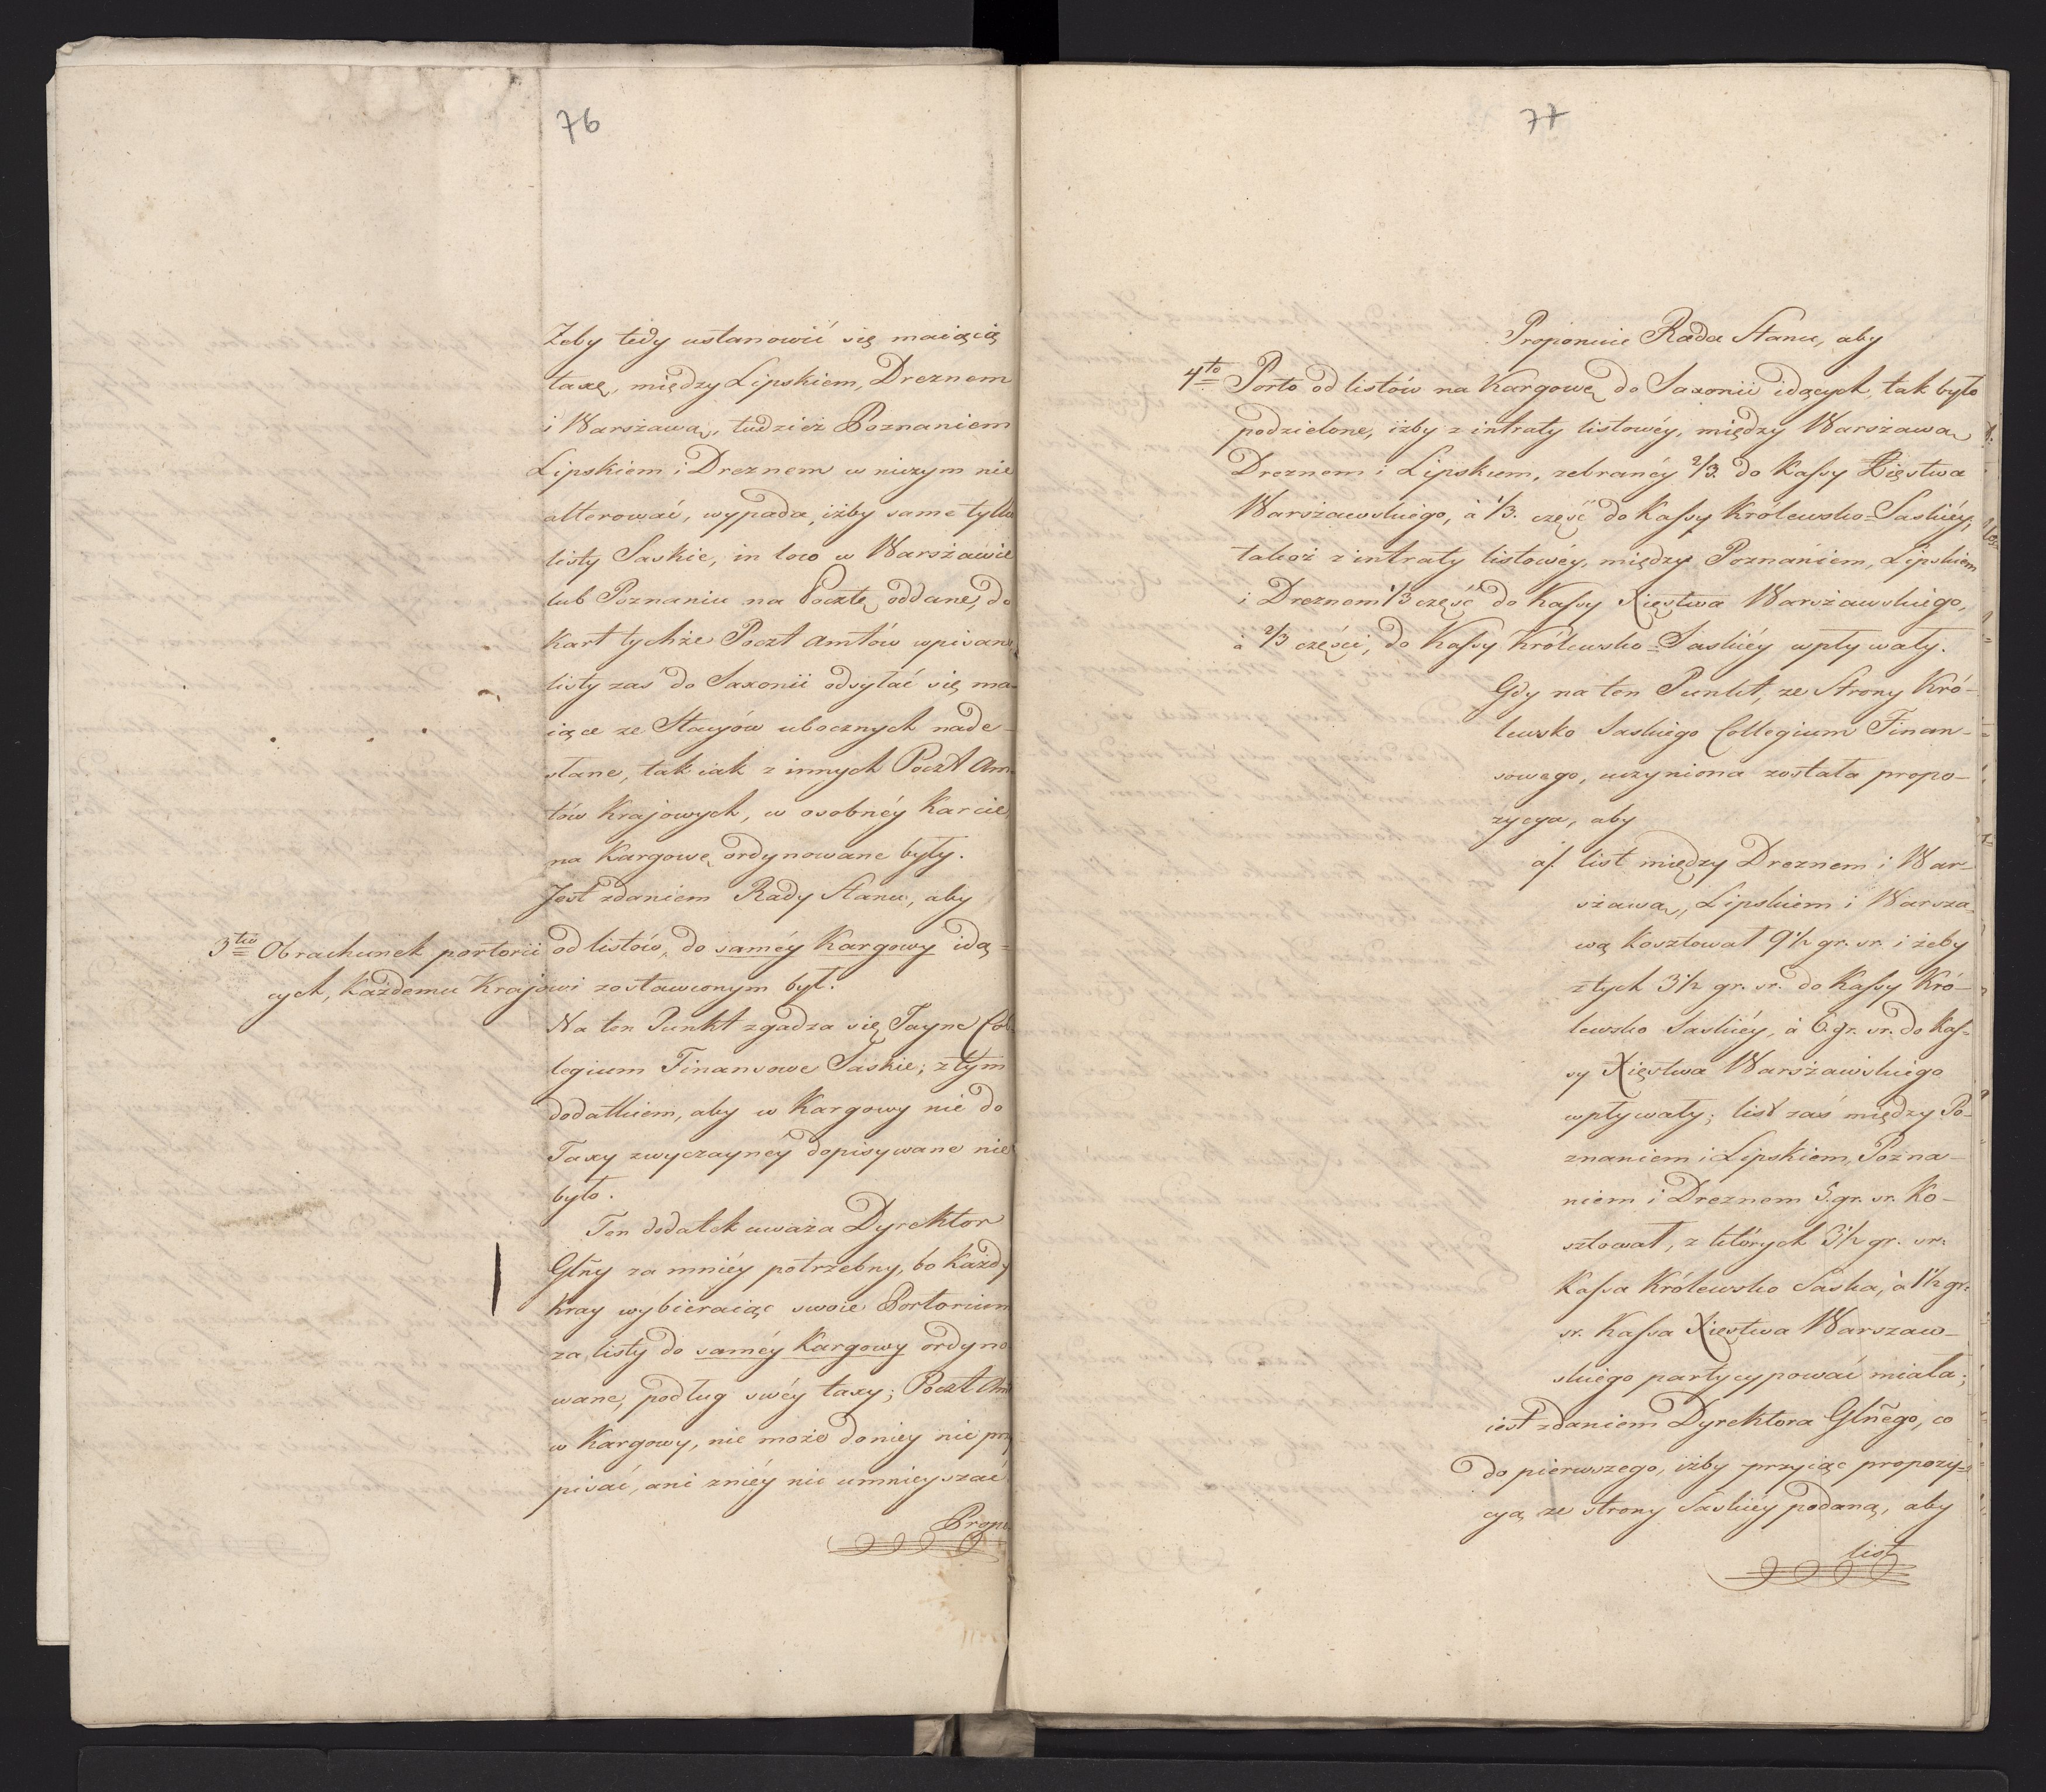 76
Żeby tedy ustanowić się maiącą
taxę, między Lipskiem, Dreznem
i Warszawą, tudzież Poznaniem
Lipskiem i Dreznem w niczym nie
alterować, wypada, iżby same tylko
listy Saskie, in loco w Warszawie
lub Poznaniu na Pocztę oddane, do
Kart tychże Poczt Amtów wpisane
listy zaś do Saxonii odsyłać się ma-
iące ze Stacyów ubocznych nade-
słane, tak iak z innych Poczt Am-
tów Krajowych, w osobnéy Karcie
na Kargowę ordynowane były.
Jest zdaniem Rady Stanu, aby
3tio Obrachunek portorii od listów, do saméy Kargowy idą-
cych, każdemu Krajowi zostawionym był.
Na ten Punkt zgadza się Tayne Col-
legium Finansowe Saskie; z tym
dodatkiem, aby w Kargowy nic do
Taxy zwyczaynéy dopisywane nie
było.
Ten dodatek uważa Dyrektor
Glny za mniéy potrzebny, bo każdy
Kray wybieraiąc swoie Portorium
za listy do saméy Kargowy ordyno
wane, podług swéy taxy; Poczt Amt
w Kargowy, nie może do niéy nic przy
pisać, ani z niéy nic umnieyszać
Propo
77
Proponuie Rada Stanu, aby
4to Porto od listów na Kargowę do Saxonii idących, tak było
podzielone, iżby z intraty listowéy, między Warszawą
Dreznem i Lipskiem, zebranéy 2/3. do Kassy Xięstwa
Warszawskiego, à 1/3. część do Kassy Królewsko=Saskiéy;
takoż z intraty listowéy, między Poznaniem, Lipskiem
i Dreznem 1/3 część do Kassy Xięstwa Warszawskiego,
à 2/3 części, do Kassy Królewsko=Saskiéy wpływały.
Gdy na ten Punkt, ze Strony Kró-
lewsko Saskiego Collegium Finan-
sowego, uczyniona została propo-
zycya, aby
a/. list między Dreznem i War-
szawą, Lipskiem i Warsza-
wą kosztował 9 1/2 gr. sr. i żeby
z tych 3 1/2 gr. sr. do Kassy Kró-
lewsko Saskiéy, à 6. gr. sr. do Kas-
sy Xięstwa Warszawskiego
wpływały; list zaś między Po-
znaniem i Lipskiem, Pozna-
niem i Dreznem 5. gr. sr. ko-
sztował, z których 3 1/2 gr. sr.
Kassa Królewsko Saska, à 1 1/2 gr.
sr. Kassa Xięstwa Warszaw-
skiego partycypować miała;
iest zdaniem Dyrektora Glnego, co
do pierwszego, iżby przyiąc propozy=
cyą ze strony Saskiéy podaną, aby
list